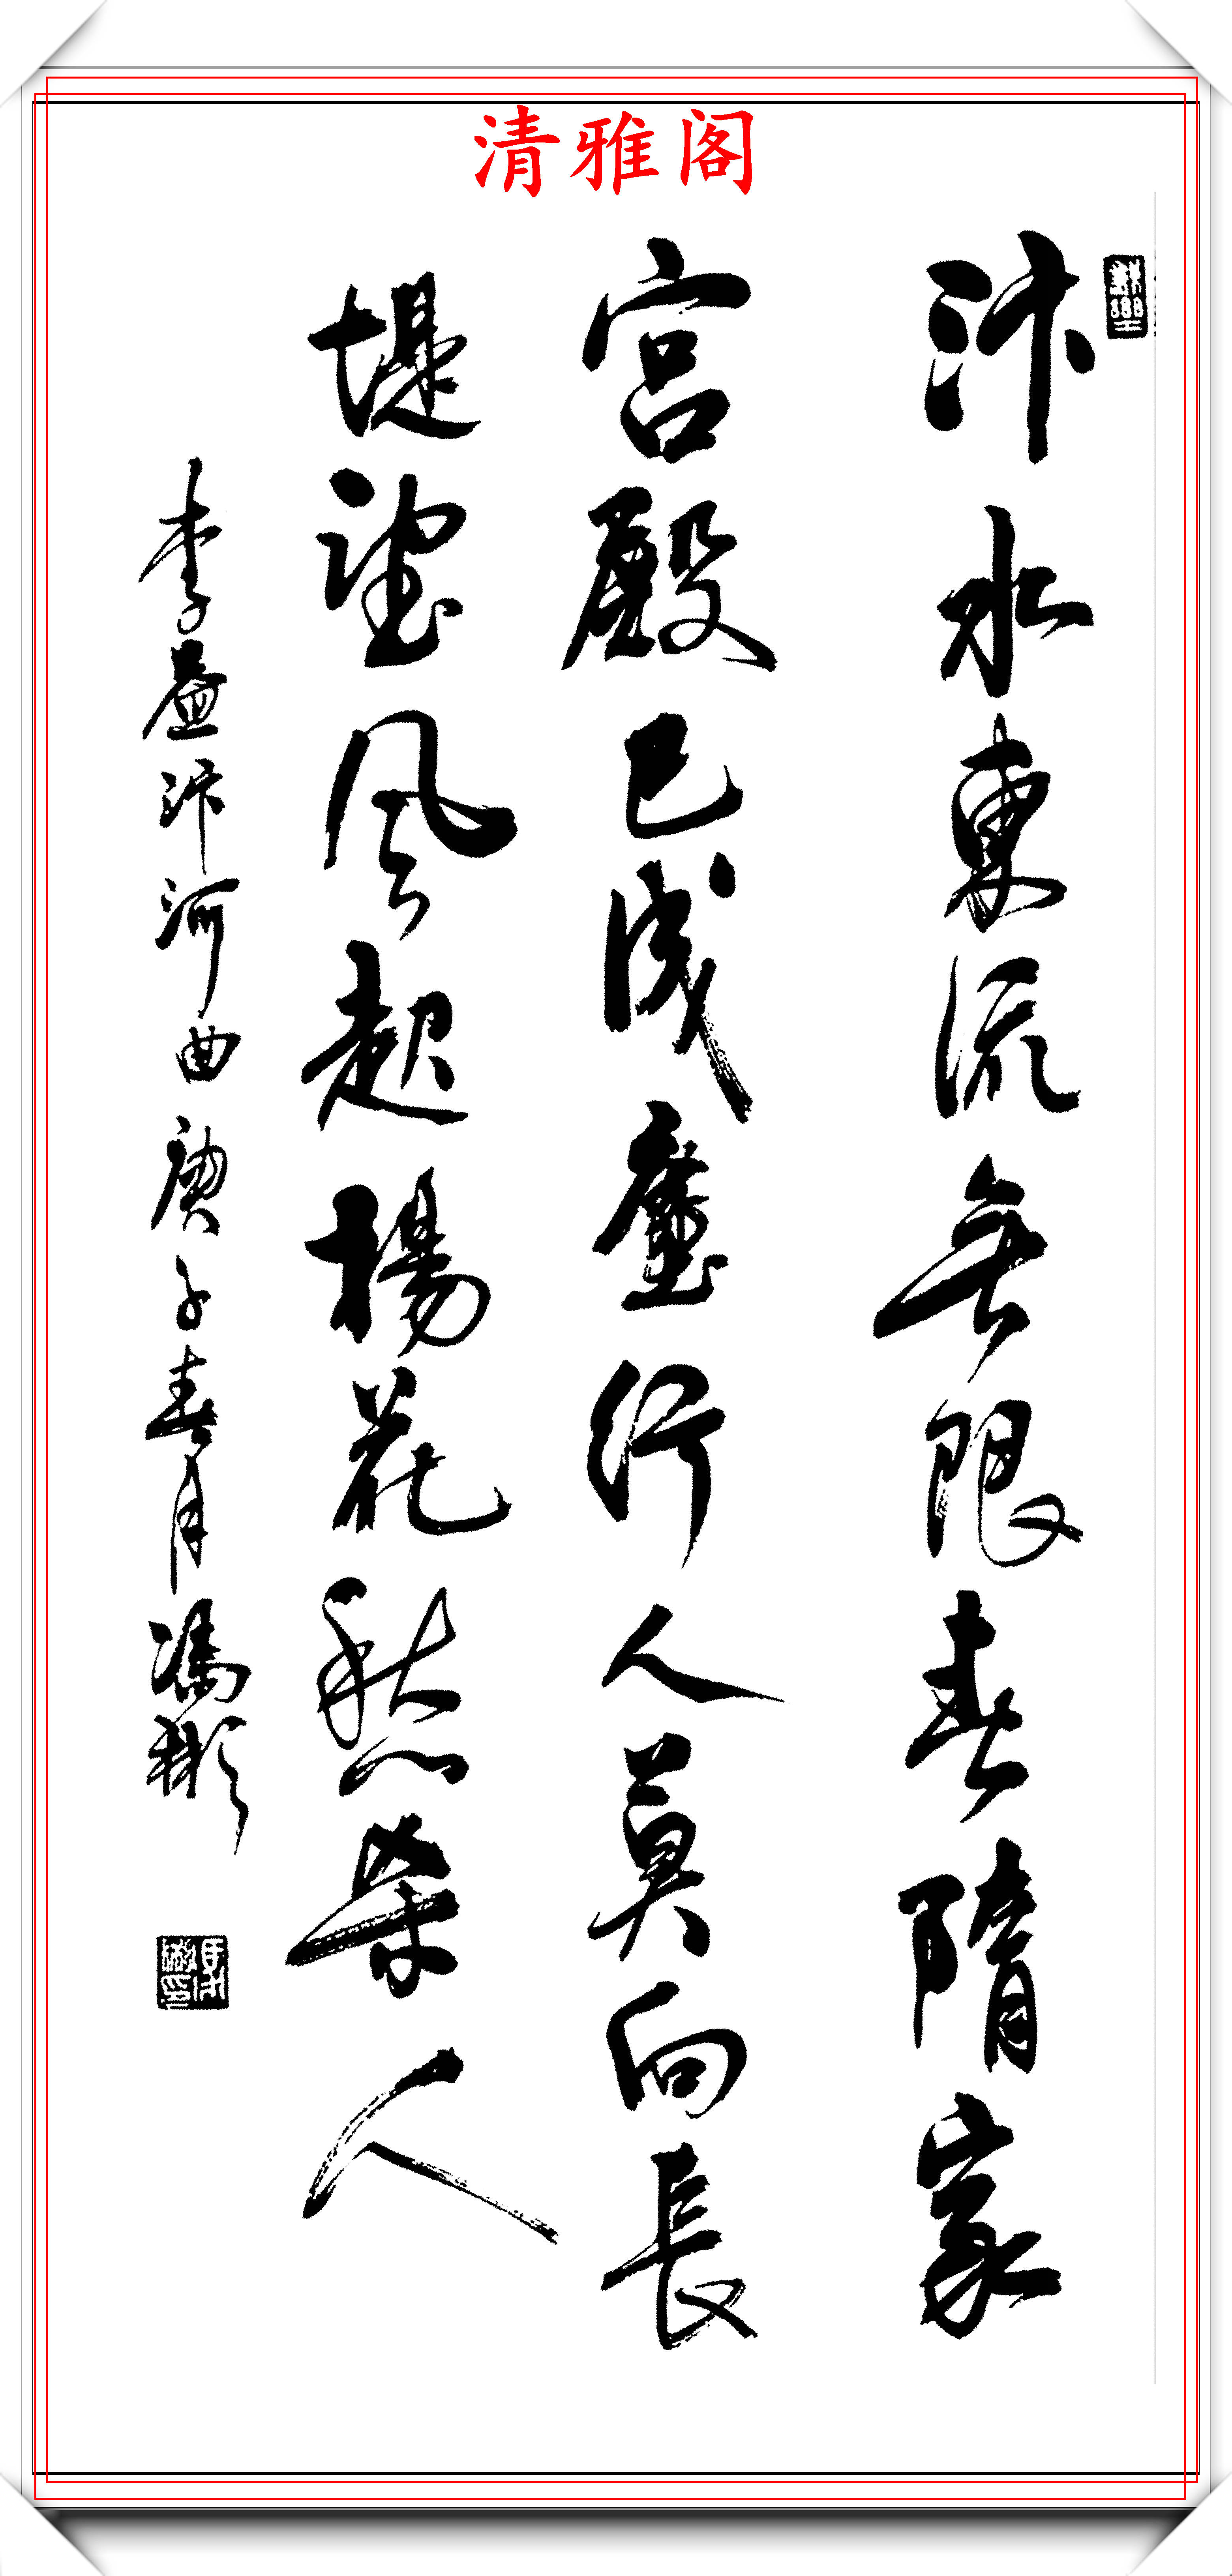 清雅阁
汴水東流无限春隋家
宫殿已成塵行人莫向長
堤望風起楊花愁殺人
李益汴河曲庚子春月馮彬